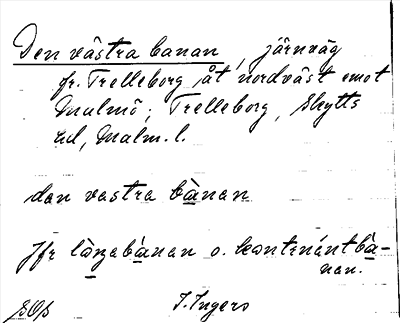 Den västra banan, järnväg
fr. Trelleborg åt nordväst emot
Malmö; Trelleborg, Skytts
hd, Malm. l.
dan vastra bànan
Jfr lànabànan o. kontenántbà-
nan.
I. Ingers